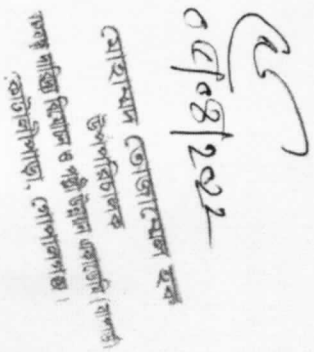 ০৭/০৪/২০২২
মোহাম্মদ তোজাম্মেল হক
উপপরিচালক
বঙ্গবন্ধু দারিদ্র্য বিমোচন ও পল্লী উন্নয়ন একাডেমি (বাপার্ড)
কোটালীপাড়া, গোপালগঞ্জ।